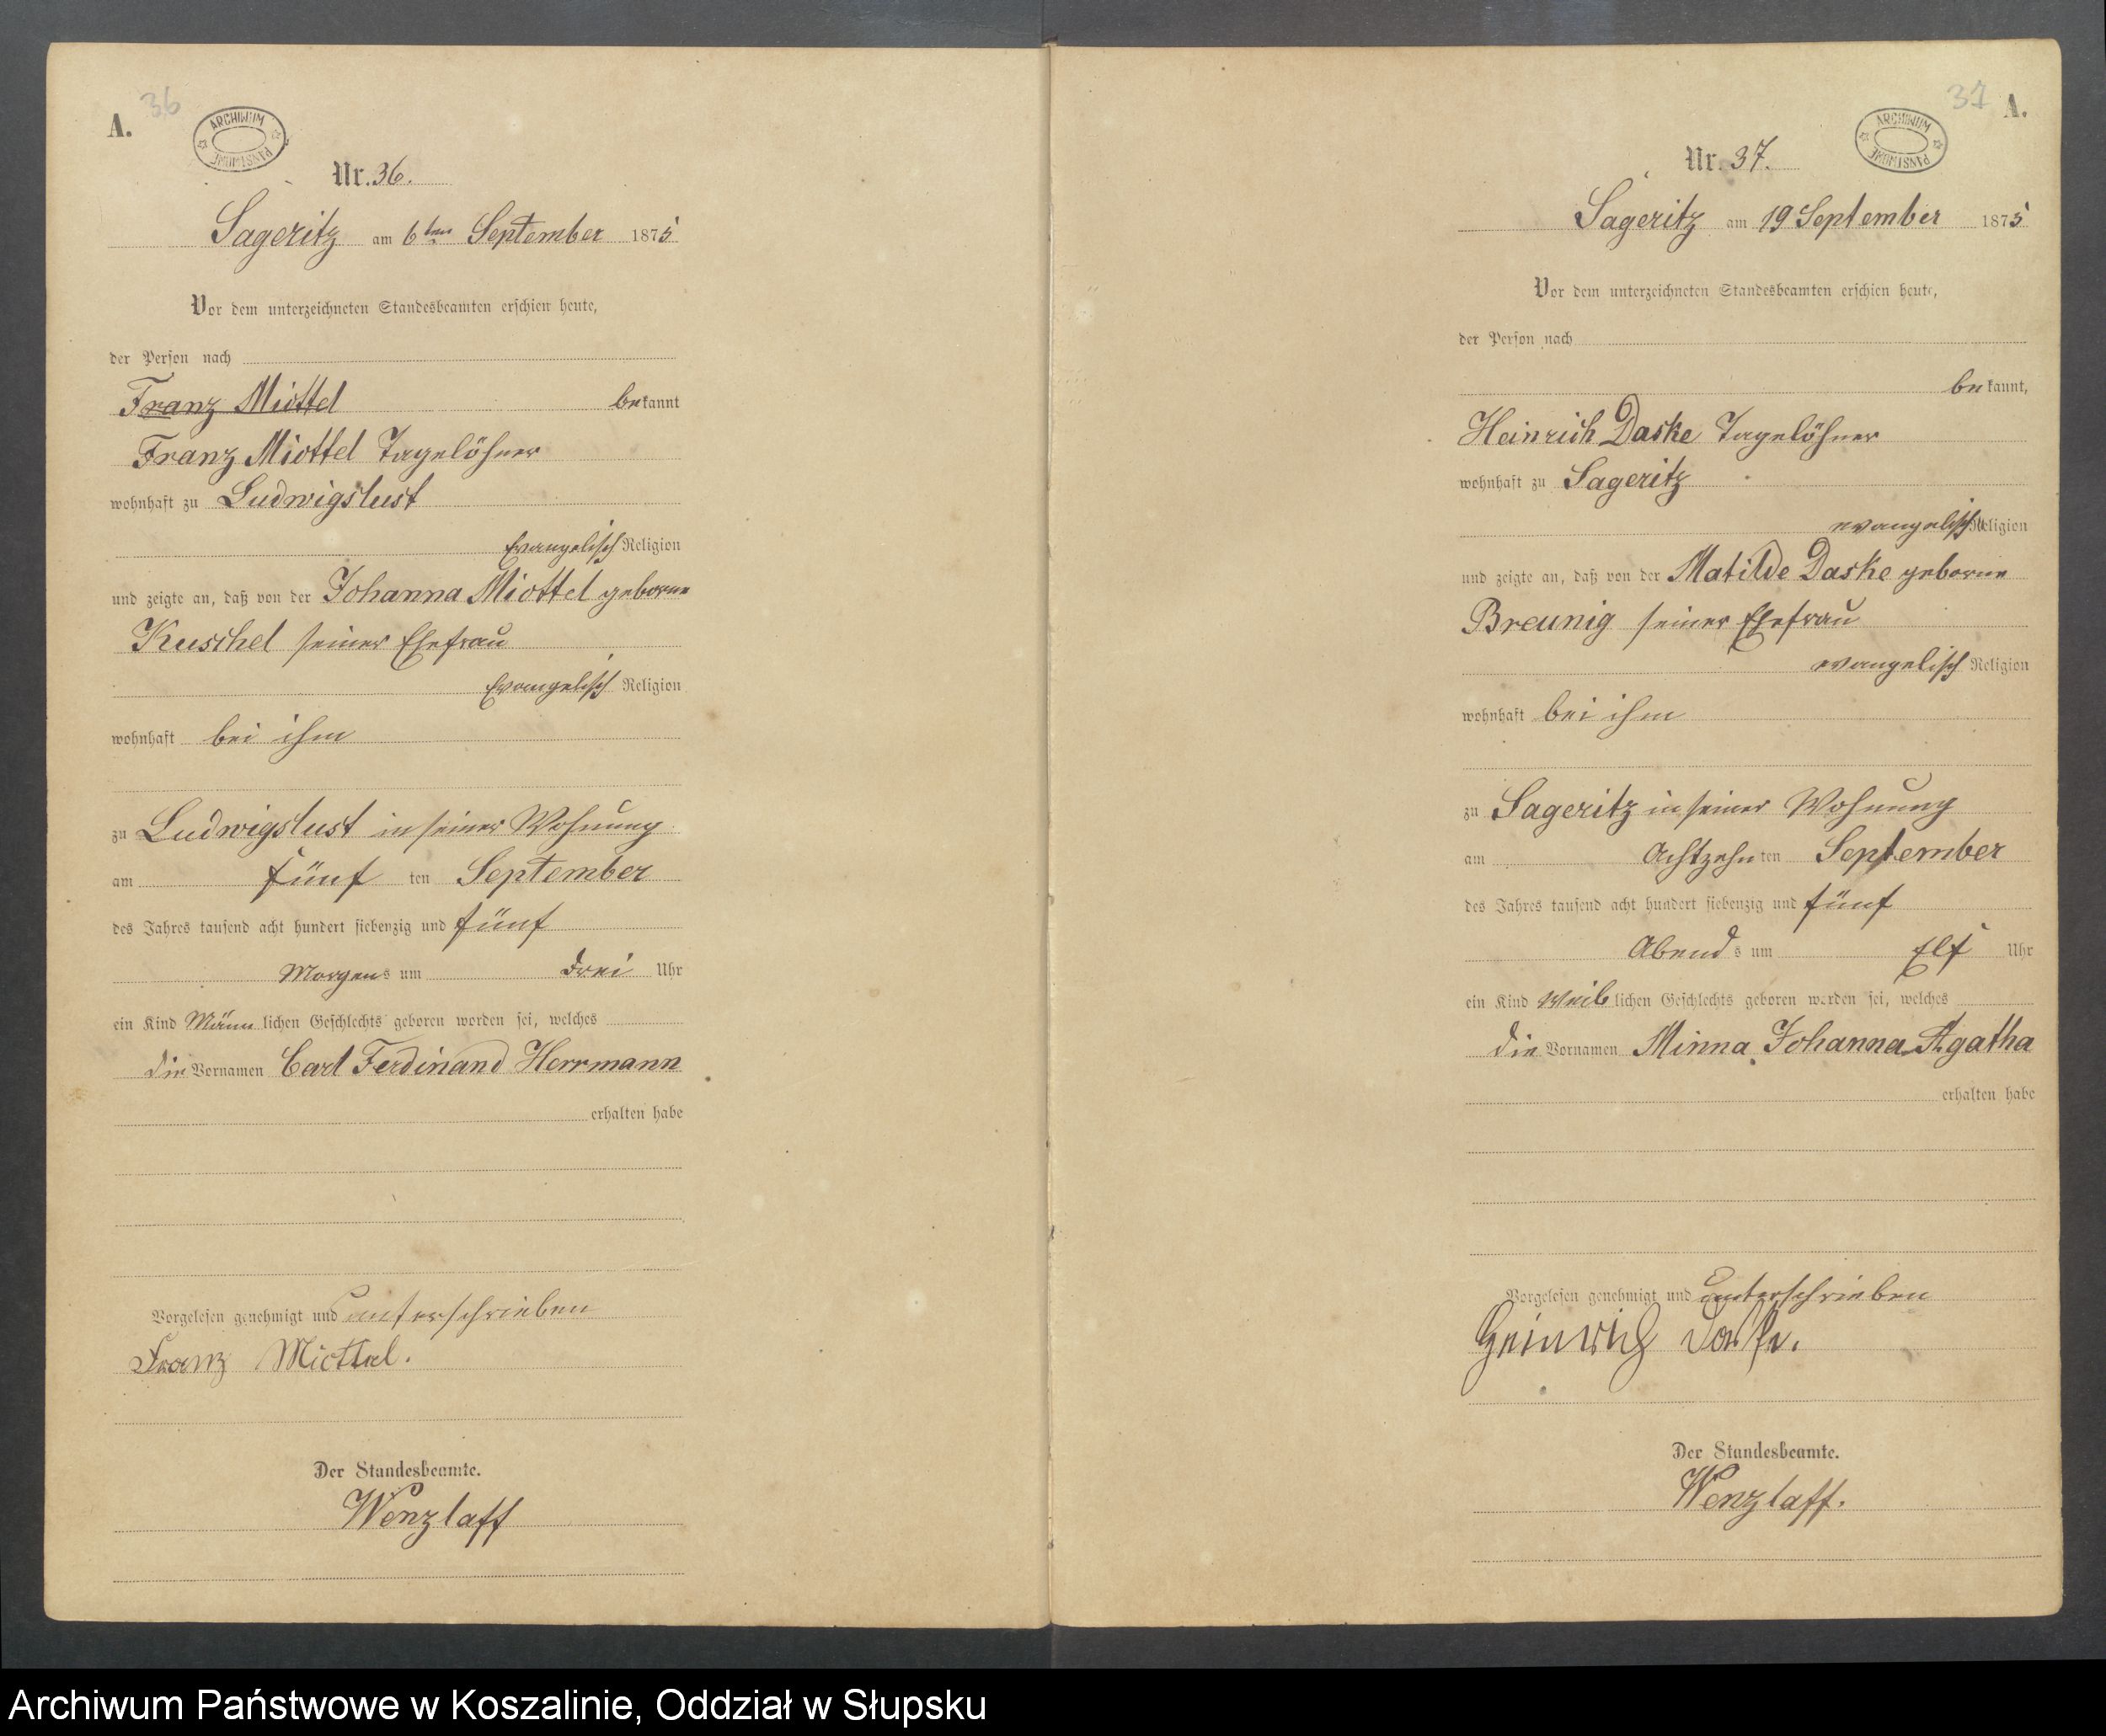 A. 36
ARCHIWUM PAŃSTWOWE
Nr. 36.
Sageritz am 6ten September 1875
Vor dem unterzeichneten Standesbeamten erschien heute,
der Person nach
Franz Miottel bekannt
Franz Miottel Tagelöhner
wohnhaft zu Ludwigslust
Evangelisch Religion
und zeigte an, daß von der Johanna Miottel geborne
Kuschel seiner Ehefrau
Evangelisch Religion
wohnhaft bei ihm
zu Ludwigslust in seiner Wohnung
am fünf ten September
des Jahres tausend acht hundert siebenzig und fünf
Morgens um drei Uhr
ein Kind Männlichen Geschlechts geboren worden sei, welches
die Vornamen Carl Ferdinand Herrmann
erhalten habe
Vorgelesen genehmigt und unterschrieben
Franz Miottel.
Der Standesbeamte.
Wenzlaff
37 A.
ARCHIWUM PAŃSTWOWE
Nr. 37.
Sageritz am 19 September 1875
Vor dem unterzeichneten Standesbeamten erschien heute,
der Person nach
bekannt,
Heinrich Daske Tagelöhner
wohnhaft zu Sageritz
evangelisch Religion
und zeigte an, daß von der Matilde Daske geborne
Breunig seiner Ehefrau
evangelisch Religion
wohnhaft bei ihm
zu Sageritz in seiner Wohnung
am Achtzehnten September
des Jahres tausend acht hundert siebenzig und fünf
Abends um Elf Uhr
ein Kind Weiblichen Geschlechts geboren worden sei, welches
die Vornamen Minna Johanna Agatha
erhalten habe
Vorgelesen genehmigt und unterschrieben
Heinrich Daske.
Der Standesbeamte.
Wenzlaff.
Archiwum Państwowe w Koszalinie, Oddział w Słupsku